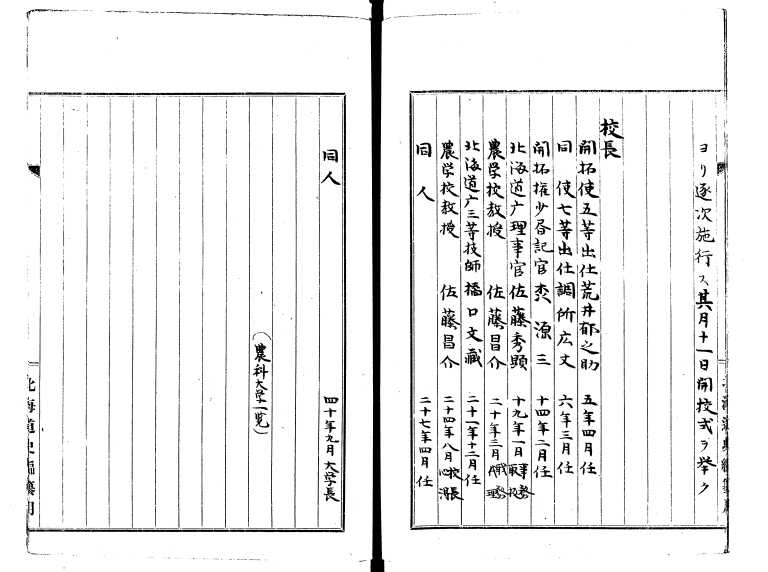 ヨリ逐次施行ス其月十一日開校式ヲ挙ク
校長
開拓使五等出仕荒井郁之助 五年四月任
同 使七等出仕調所広丈 六年三月任
開拓権少書記官 源三 十四年二月任
北海道庁理事官佐藤秀顕 十九年一月
農学校教授 佐藤昌介 二十年三月
北海道庁三等技師橋口文蔵 二十一年十二月任
農学校教授 佐藤昌介 二十四年八月校長心得
同人 二十七年四月任
同人 四十年九月大学長
(農科大学一覧)
北海道史編纂用